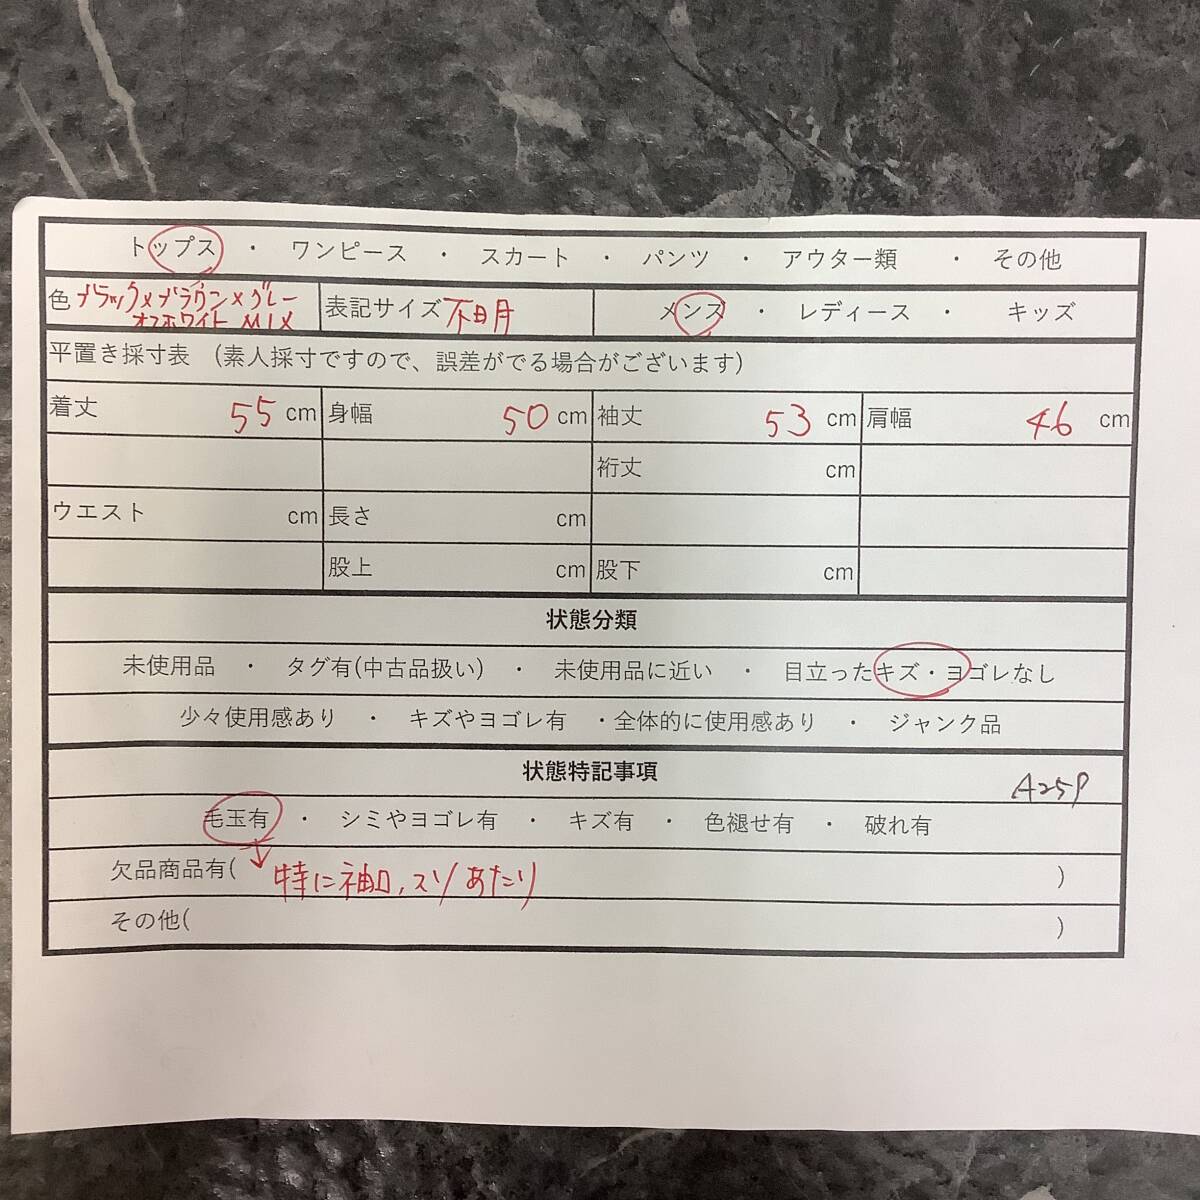 トップス ・ ワンピース ・ スカート ・ パンツ ・ アウター類 ・ その他
色 ブラック×ブラウン×グレー
オフホワイト MIX
表記サイズ 不明
メンズ ・ レディース ・ キッズ
平置き採寸表 (素人採寸ですので、誤差がでる場合がございます)
着丈 55 cm 身幅 50 cm 袖丈 53 cm 肩幅 46 cm
裄丈 cm
ウエスト cm 長さ cm
股上 cm 股下 cm
状態分類
未使用品 ・ タグ有(中古品扱い) ・ 未使用品に近い ・ 目立ったキズ・ヨゴレなし
少々使用感あり ・ キズやヨゴレ有 ・全体的に使用感あり ・ ジャンク品
状態特記事項
A259
毛玉有 ・ シミやヨゴレ有 ・ キズ有 ・ 色褪せ有 ・ 破れ有
欠品商品有( → 特に袖口,スソあたり )
その他( )